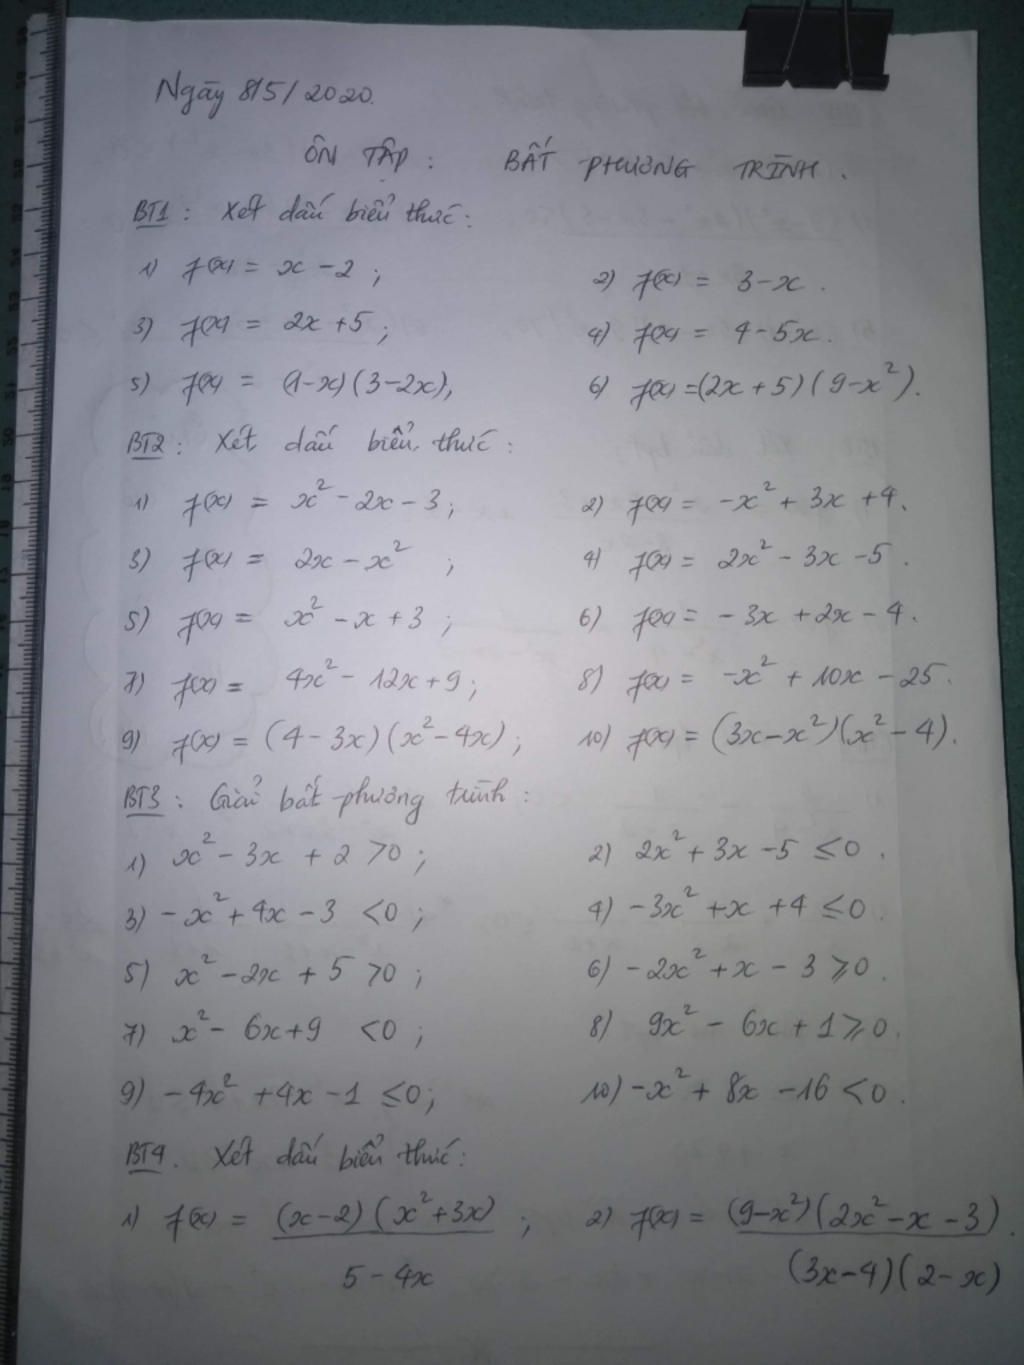 Ngày 8/5/2020.
ÔN TẬP : BẤT PHƯƠNG TRÌNH .
BT1 : Xét dấu biểu thức :
1) f(x) = x - 2 ; 2) f(x) = 3 - x .
3) f(x) = 2x + 5 ; 4) f(x) = 4 - 5x .
5) f(x) = (1-x)(3-2x), 6) f(x) = (2x+5)(9-x²).
BT2 : Xét dấu biểu thức :
1) f(x) = x² - 2x - 3 ; 2) f(x) = -x² + 3x + 4 .
3) f(x) = 2x - x² ; 4) f(x) = 2x² - 3x - 5 .
5) f(x) = x² - x + 3 ; 6) f(x) = - 3x + 2x - 4 .
7) f(x) = 4x² - 12x + 9 ; 8) f(x) = -x² + 10x - 25 .
9) f(x) = (4 - 3x)(x² - 4x) ; 10) f(x) = (3x - x²)(x² - 4).
BT3 : Giải bất phương trình :
1) x² - 3x + 2 > 0 ; 2) 2x² + 3x - 5 ≤ 0 .
3) - x² + 4x - 3 < 0 ; 4) - 3x² + x + 4 ≤ 0 .
5) x² - 2x + 5 > 0 ; 6) - 2x² + x - 3 ≥ 0 .
7) x² - 6x + 9 < 0 ; 8) 9x² - 6x + 1 ≥ 0 .
9) - 4x² + 4x - 1 ≤ 0 ; 10) - x² + 8x - 16 < 0 .
BT4 . Xét dấu biểu thức :
1) f(x) = (x-2)(x²+3x) ; 2) f(x) = (9-x²)(2x²-x-3) .
5 - 4x (3x-4)(2-x)